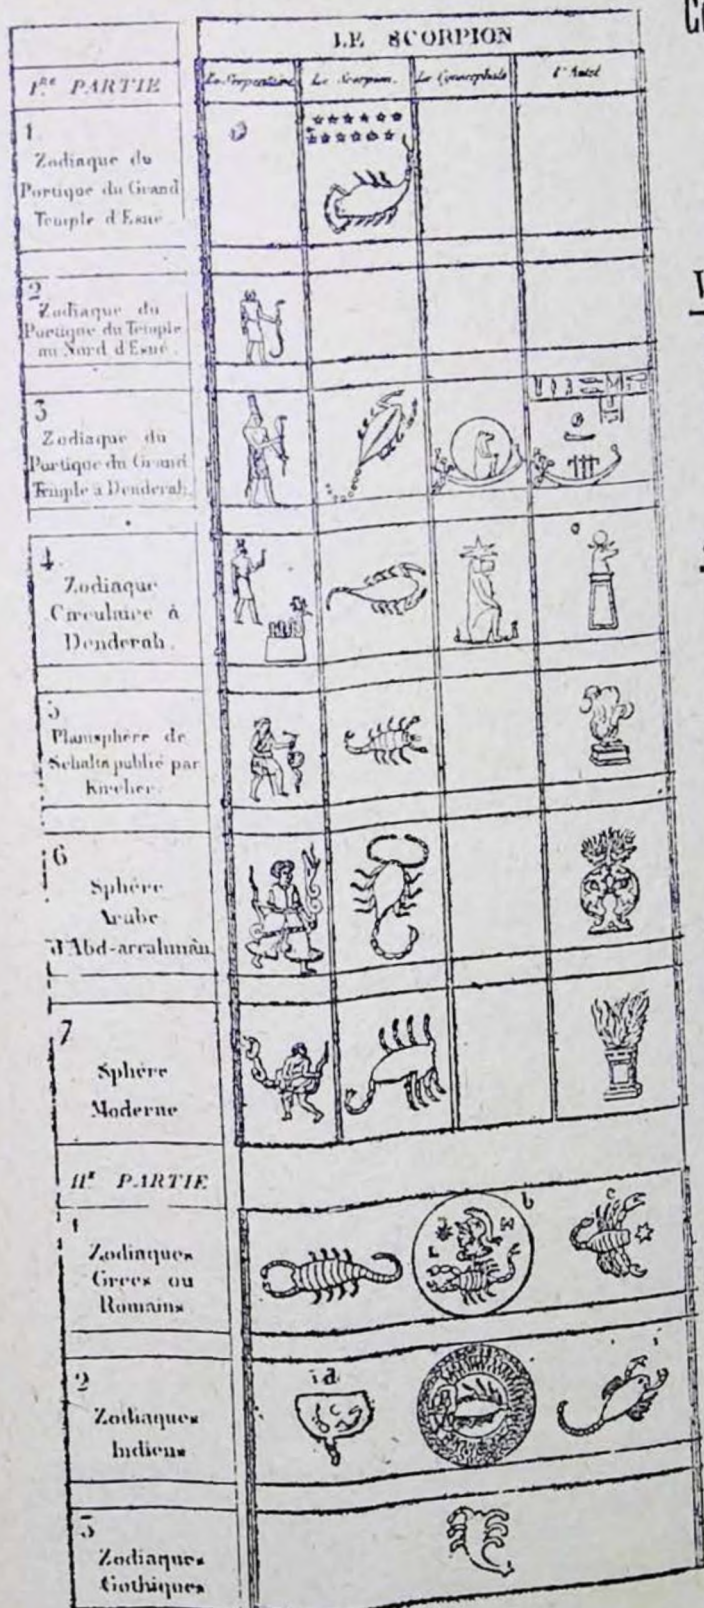 LE SCORPION
Iʳᵉ PARTIE
Le Serpentaire
Le Scorpion.
Le Cynocephale
l'Autel
1
Zodiaque du
Portique du Grand
Temple d'Esné
2
Zodiaque du
Portique du Temple
au Nord d'Esné.
3
Zodiaque du
Portique du Grand
Temple à Denderah.
4
Zodiaque
Circulaire à
Denderah.
5
Planisphère de
publié par
Kircher.
6
Sphère
Arabe
d'Abd-arrahmân
7
Sphère
Moderne
IIᵉ PARTIE
1
Zodiaques
Grecs ou
Romains
b
c
2
Zodiaques
Indiens
3
Zodiaques
Gothiques